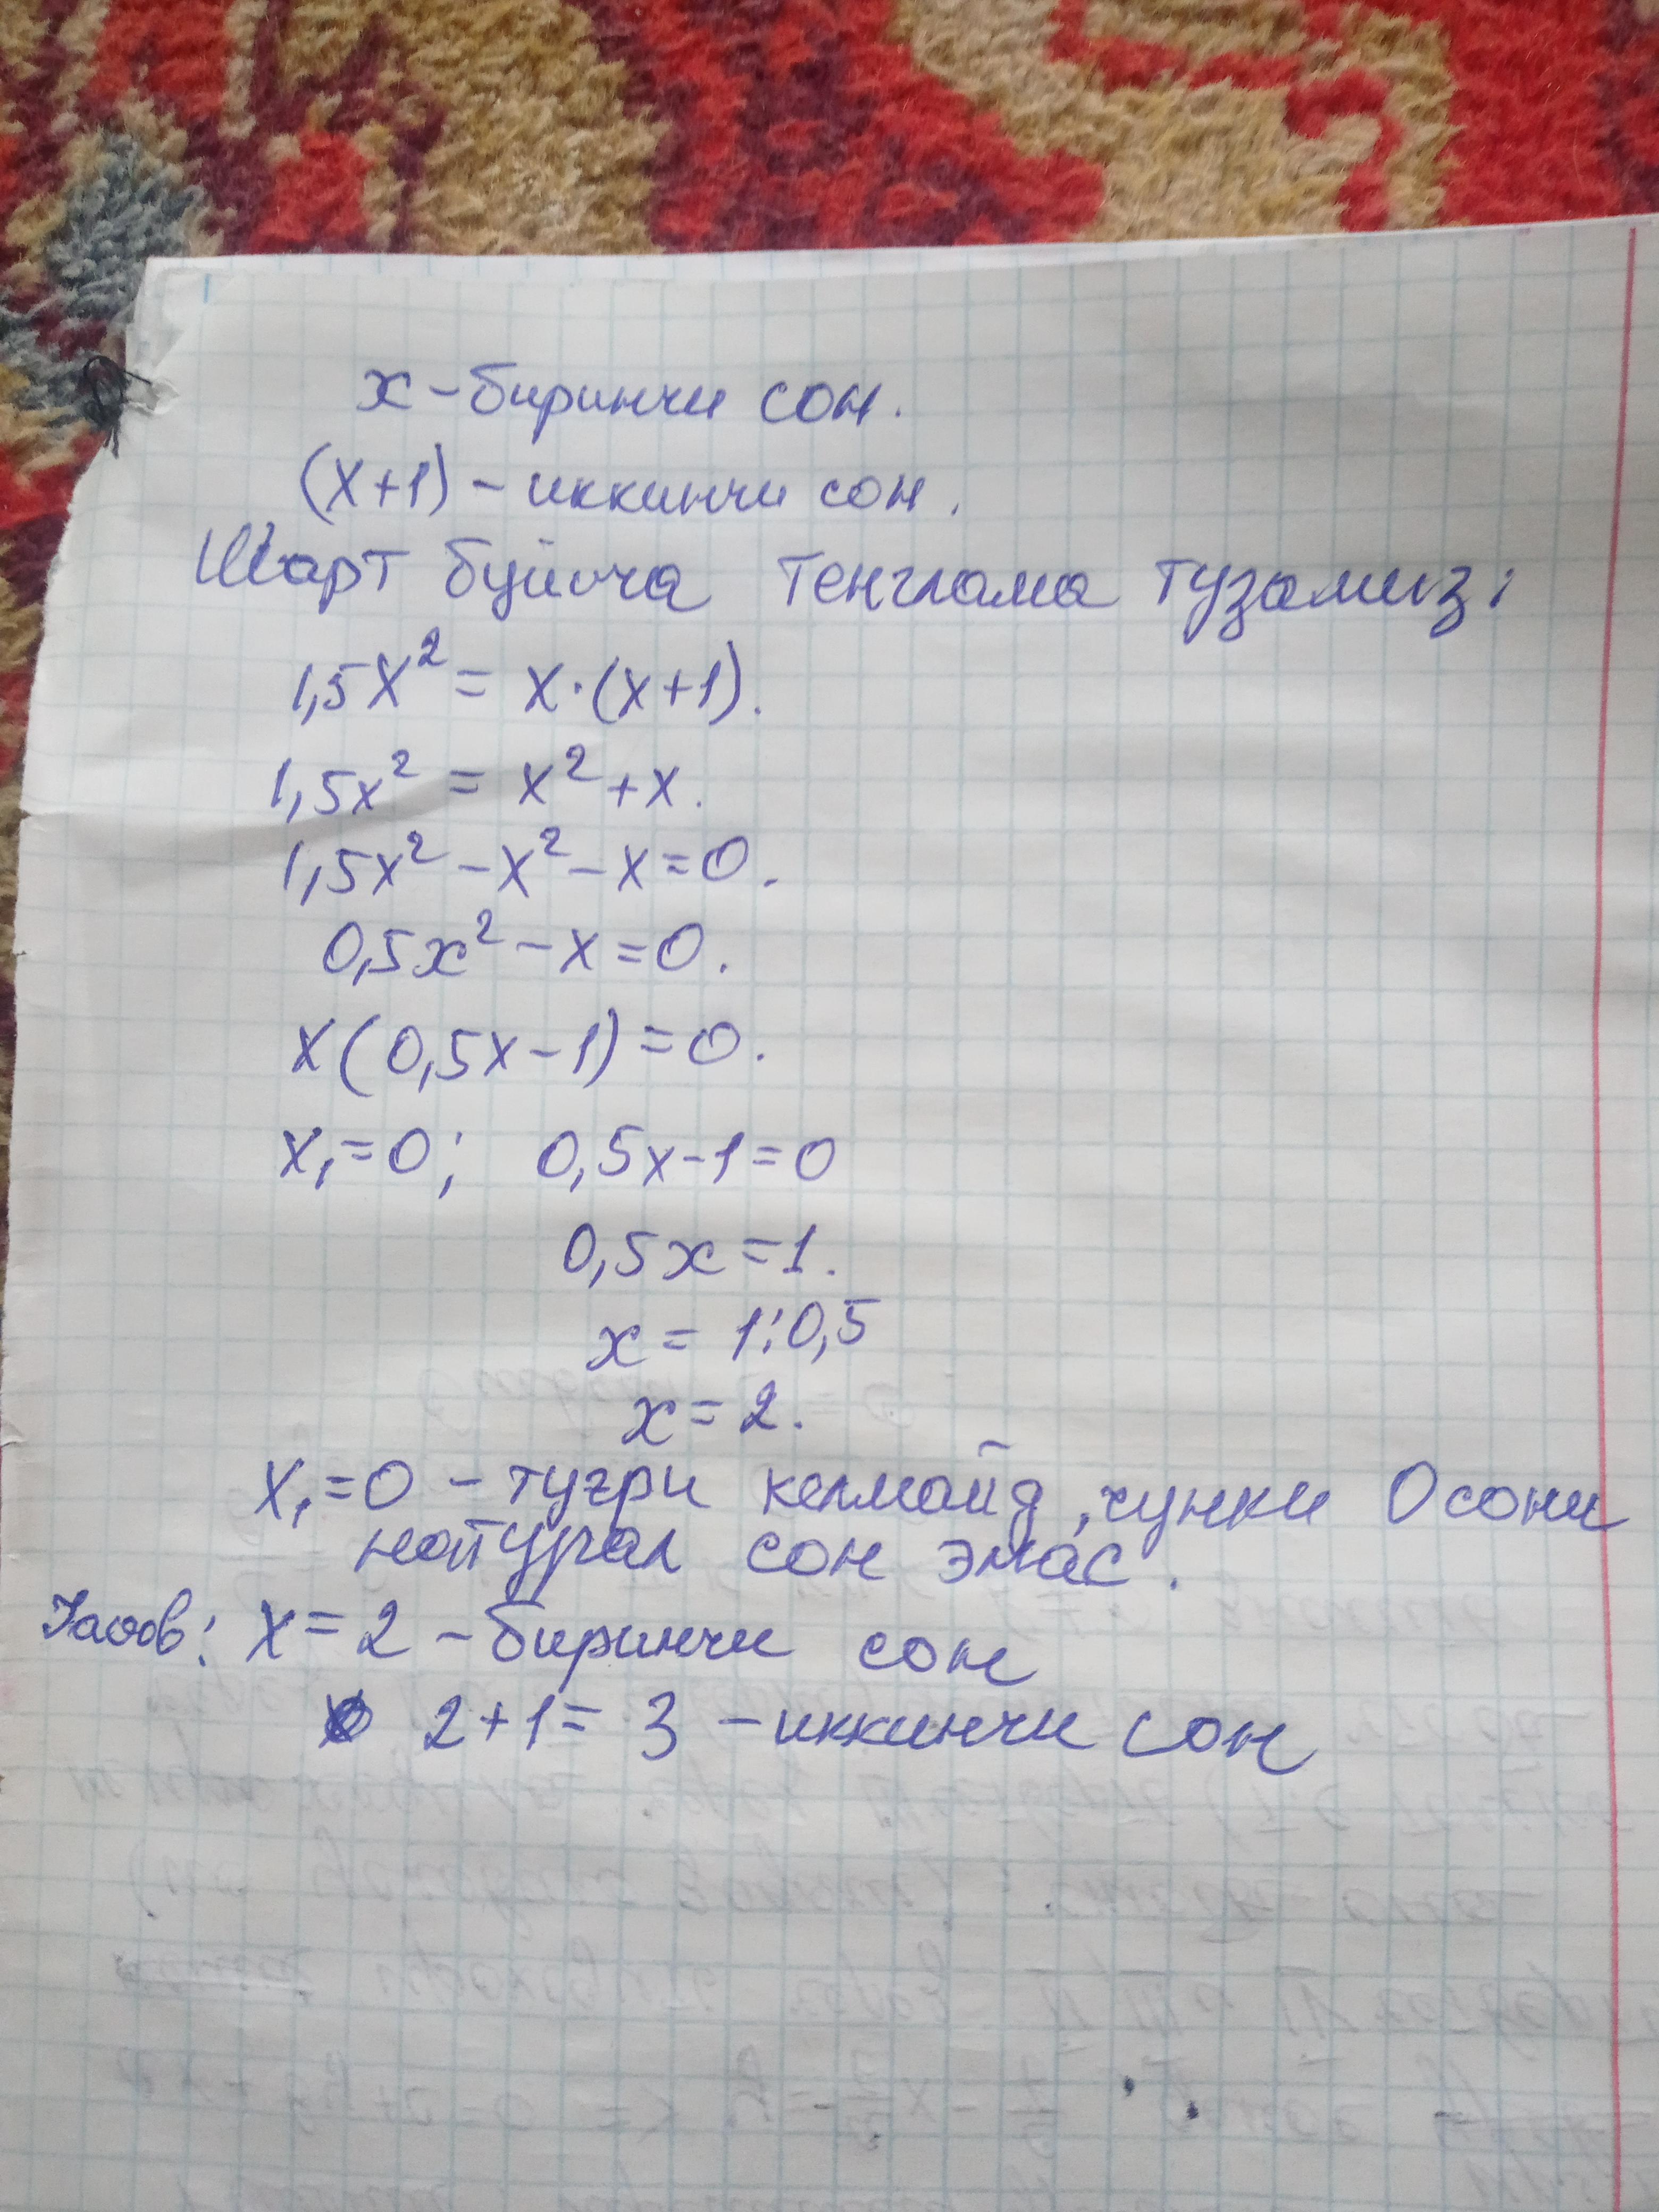 x - биринчи сон.
(x+1) - иккинчи сон.
Шарт буйича тенглама тузамиз:
1,5x² = x·(x+1).
1,5x² = x² + x.
1,5x² - x² - x = 0.
0,5x² - x = 0.
x(0,5x - 1) = 0.
x₁ = 0; 0,5x - 1 = 0
0,5x = 1.
x = 1:0,5
x = 2.
x₁ = 0 - тугри келмайд, чунки 0 сони
натурал сон эмас.
Жавоб: x = 2 - биринчи сон
2+1 = 3 - иккинчи сон